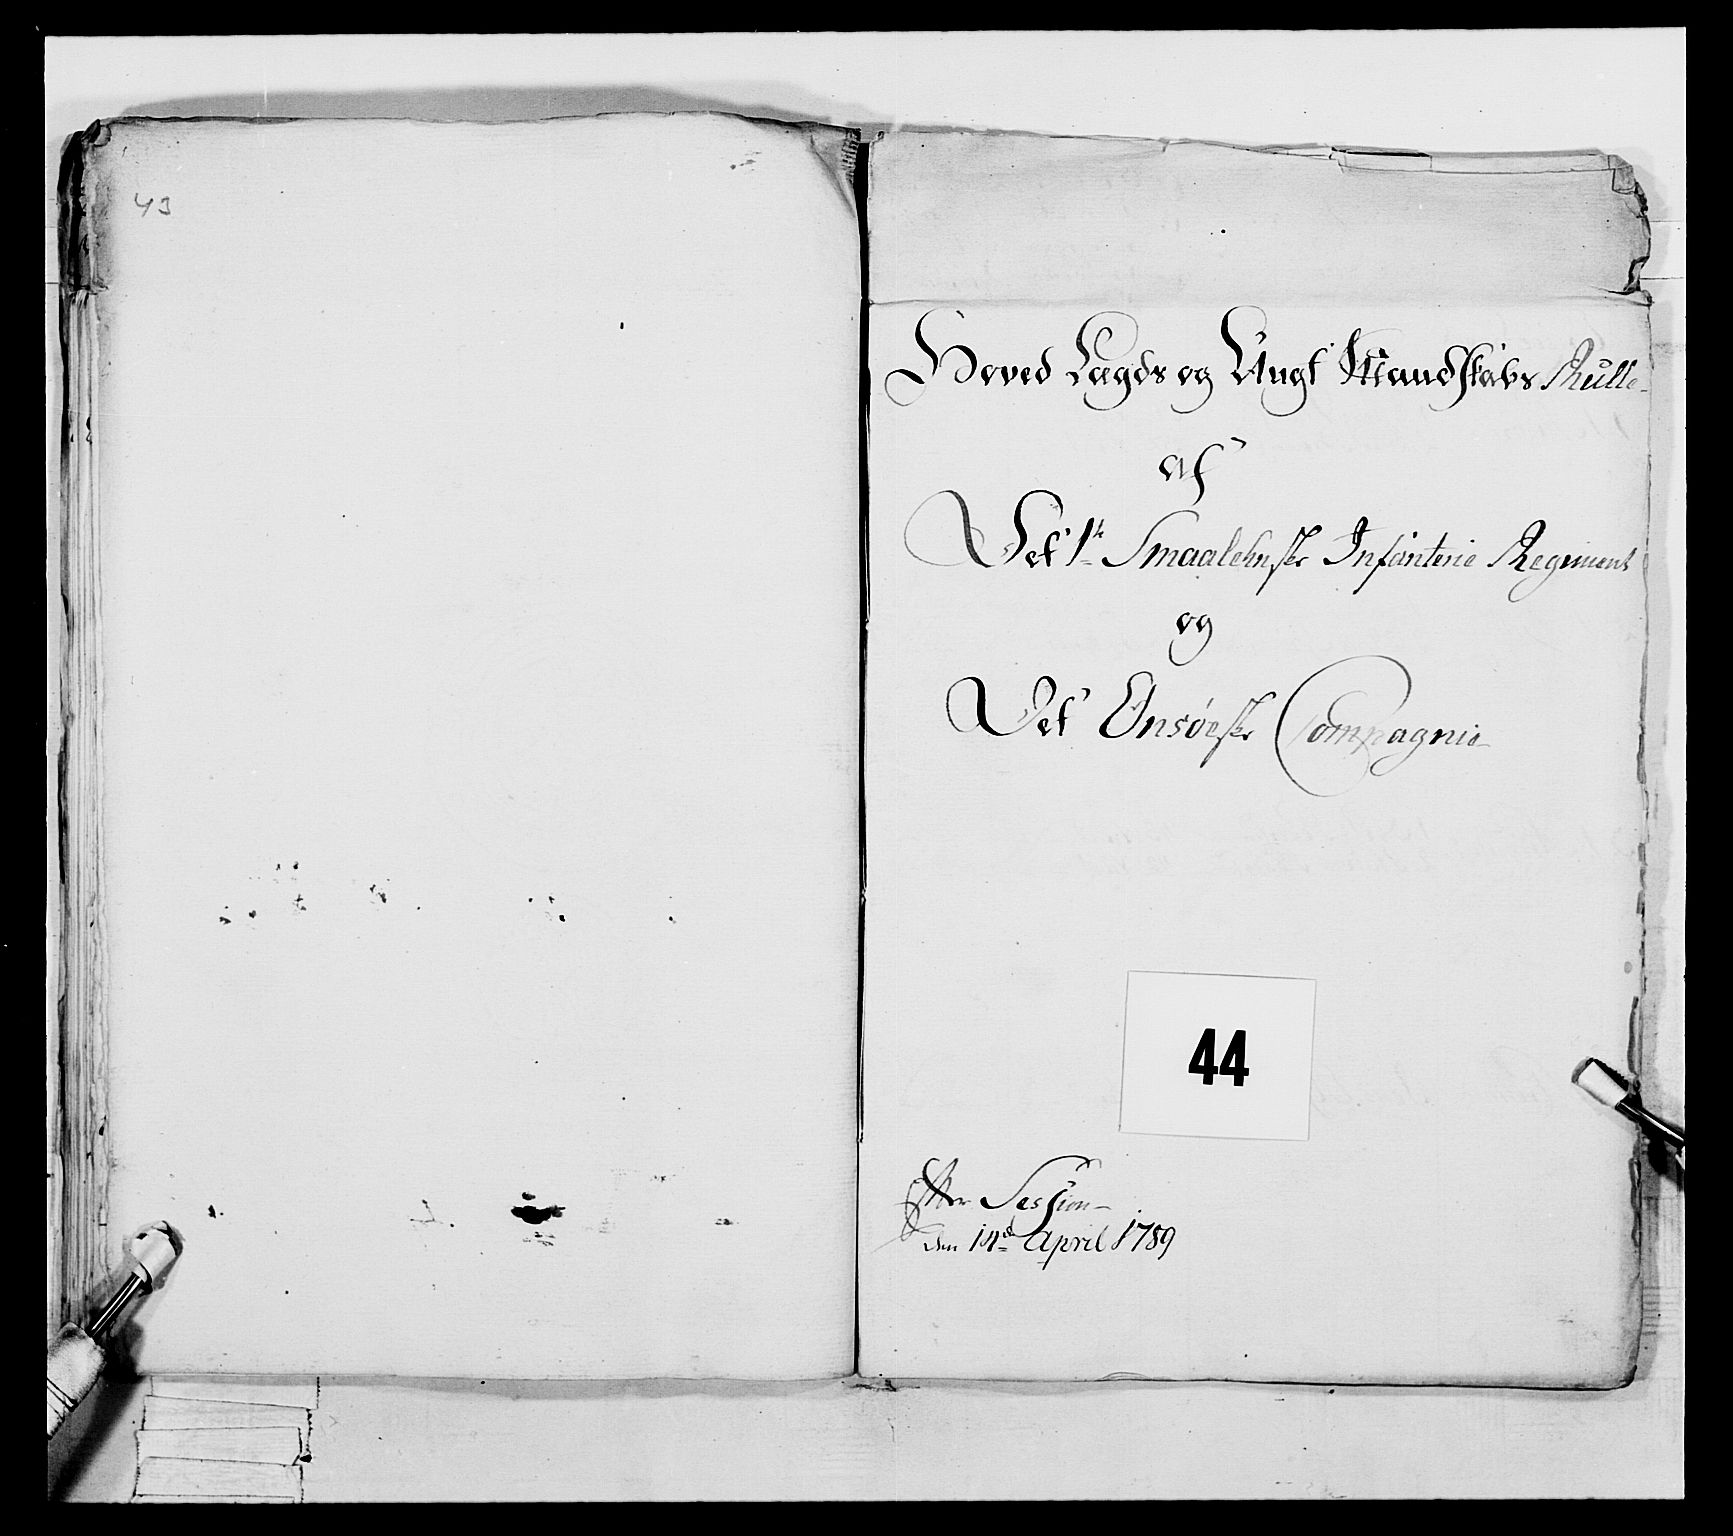 43
Hoved Lægds og Ungt Mandskabs Rulle
af
Det 1te Smaalehnske Infanterie Regiment
og
Det Onsøeske Compagnie
44
Efter Session
den 14de April 1789